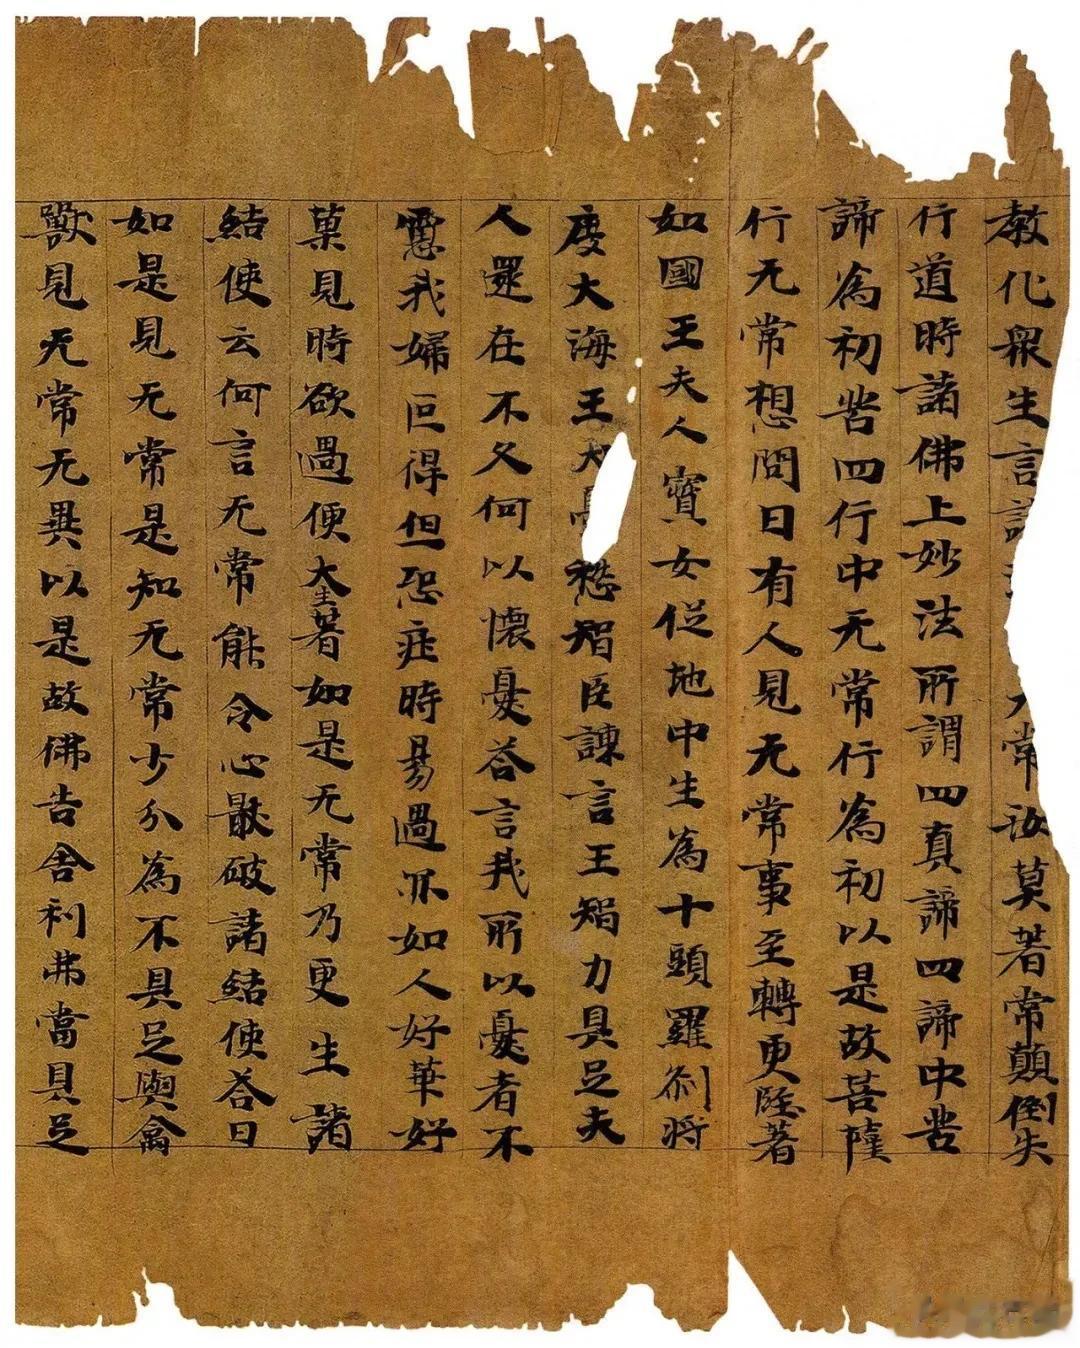 教化眾生言諸常汝莫著常顛倒失
行道時諸佛上妙法所謂四真諦四諦中苦
諦為初苦四行中无常行為初以是故菩薩
行无常想問曰有人見无常事至轉更堅著
如國王夫人寶女從地中生為十頭羅剎將
度大海王大憂愁智臣諫言王智力具足夫
人還在不久何以懷憂答言我所以憂者不
慮我婦叵得但恐壯時易過亦如人好華好
菓見時欲過便大生著如是知无常乃更生諸
結使云何言无常能令心猒破諸結使答曰
如是見无常是知无常少分為不具足與禽
獸見无常无異以是故佛告舍利弗當具足